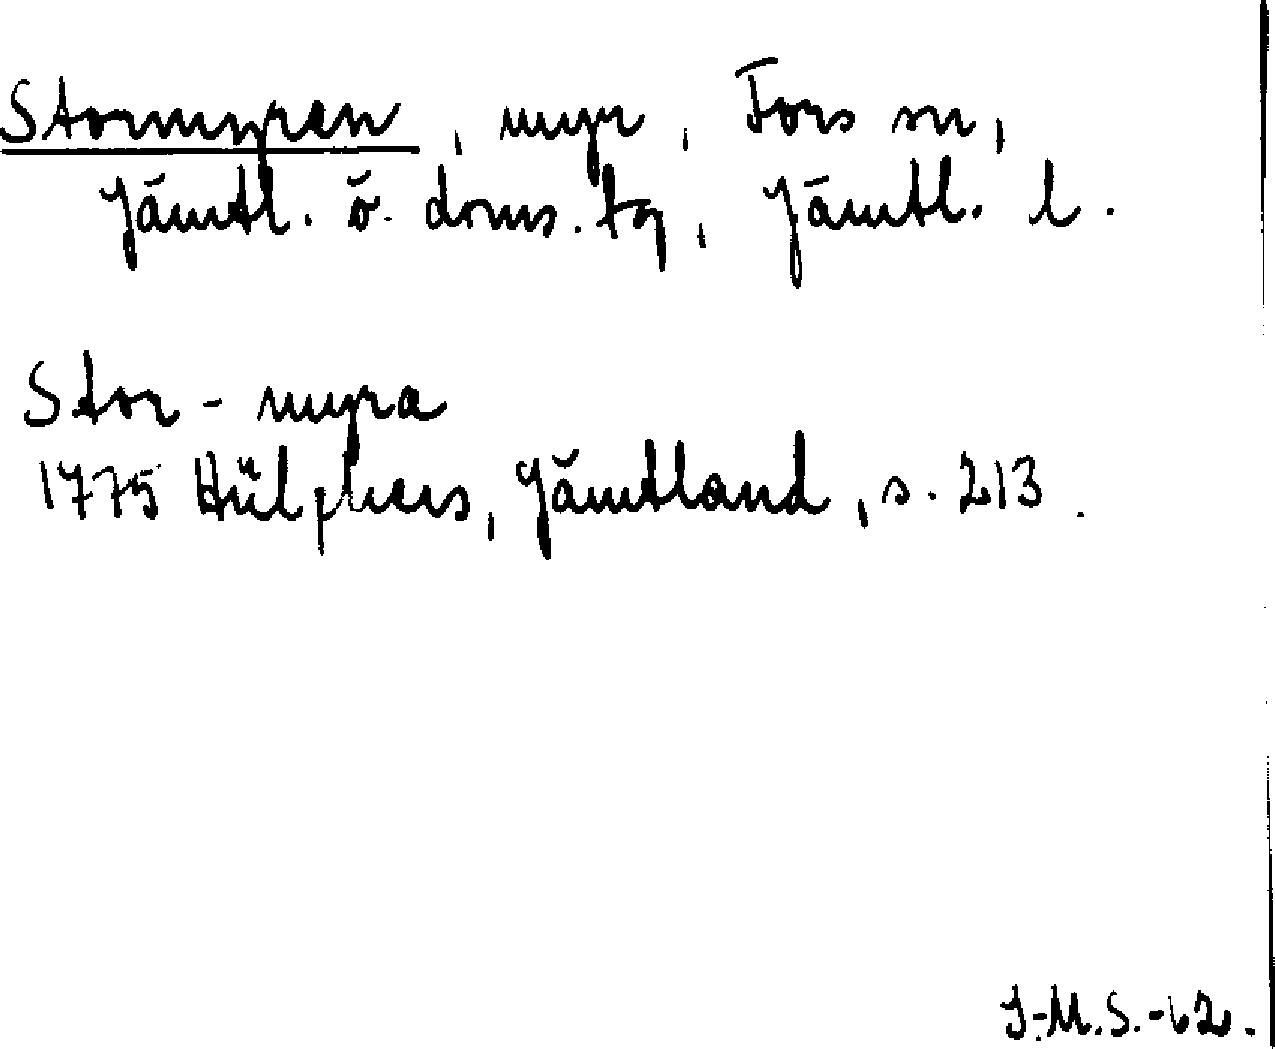 Stormyren, myr, Fors sn,
Jämtl. ö. doms. tg, Jämtl. l.
Stor-myra
1775 Hülphers, Jämtland, s. 213.
J-M.S.-62.